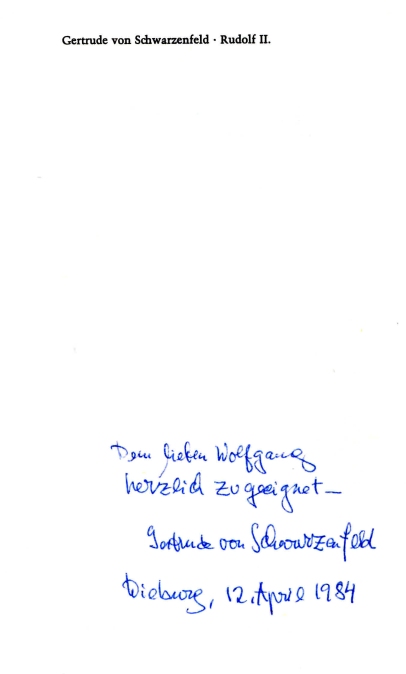 Gertrude von Schwarzenfeld · Rudolf II.
Dem lieben Wolfgang
herzlich zugeeignet –
Gertrude von Schwarzenfeld
Dieburg, 12. April 1984